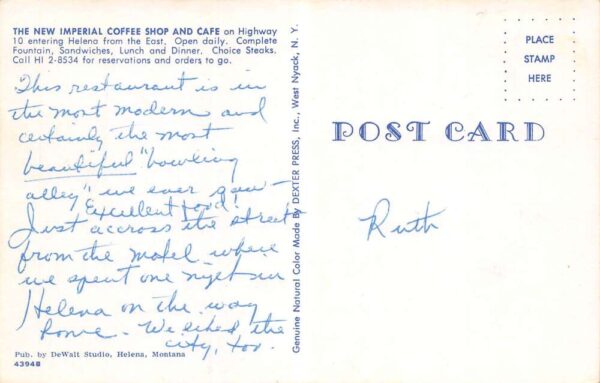 THE NEW IMPERIAL COFFEE SHOP AND CAFE on Highway
10 entering Helena from the East. Open daily. Complete
Fountain, Sandwiches, Lunch and Dinner. Choice Steaks.
Call HI 2-8534 for reservations and orders to go.
This restaurant is in
the most modern and
certainly the most
beautiful "bowling
alley" we ever saw -
Excellent food!
Just accross the street
from the motel where
we spent one night in
Helena on the way
home - We liked the
city, too.
Pub. by DeWalt Studio, Helena, Montana
43948
Genuine Natural Color Made By DEXTER PRESS, Inc., West Nyack, N. Y.
PLACE
STAMP
HERE
POST CARD
Ruth